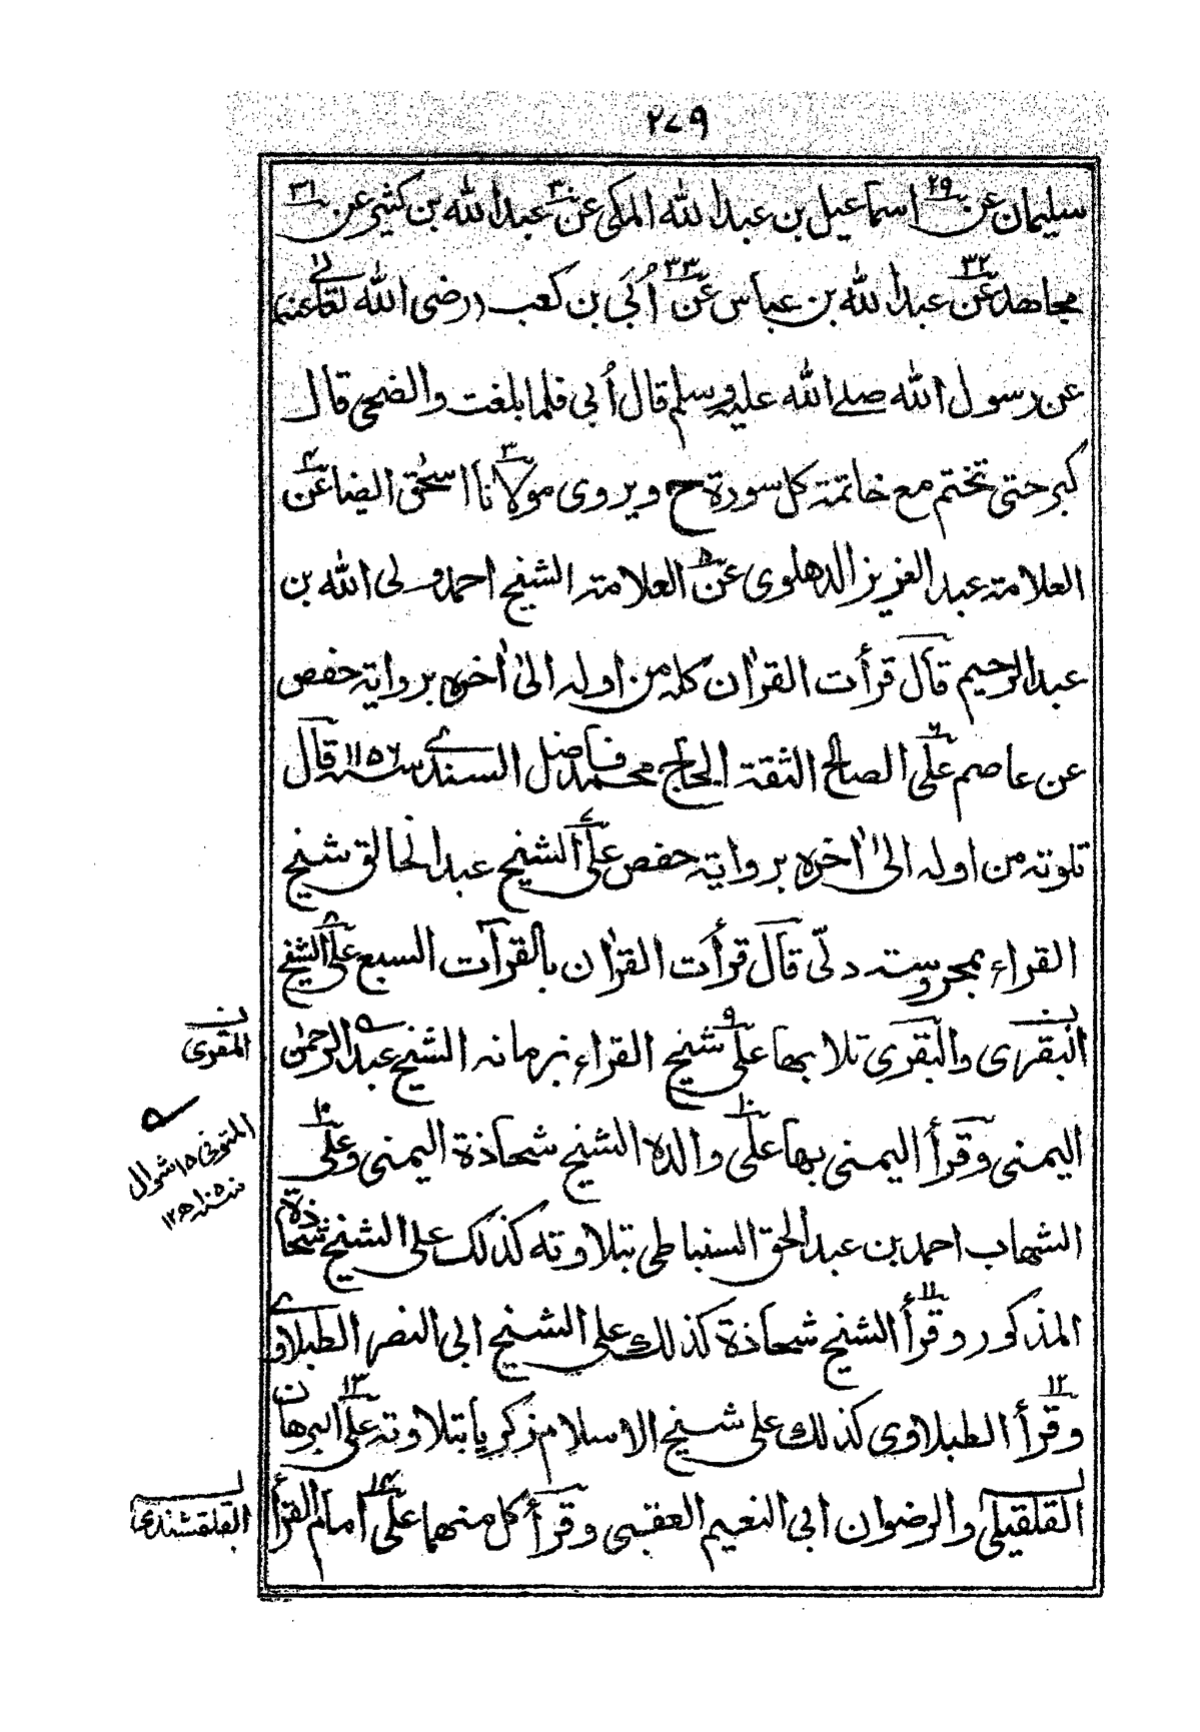 ۲۷۹
سلیمان عن ۲۹ اسماعیل بن عبد الله المکی عن ۳۰ عبد الله بن کثیر عن ۳۱
مجاهد عن ۳۲ عبد الله بن عباس عن ۳۳ اُبَی بن کعب (رضی الله تعالٰی عنہما)
عن رسول الله صلے الله علیہ وسلم قال اُبی فلما بلغت والضحی قال
کبر حتی تختم مع خاتمة کل سورة ح ویروی مولانا ۳ اسحٰق ایضا عن ۴
العلامة عبد العزیز الدهلوی عن ۵ العلامة الشیخ احمد ولی الله بن
عبد الرحیم قال قرأت القراٰن کله من اوله الیٰ اٰخره بروایة حفص
عن عاصم علی ۶ الصالح الثقة الحاج محمد فاضل السندے سنہ ۱۱۵۶ قال
تلوته من اوله الیٰ اٰخره بروایة حفص علی ۷ الشیخ عبد الخالق شیخ
القراء بمحروسة دلّی قال قرأت القراٰن بالقرآت السبع علی ۸ الشیخ
البقری والبقری تلا بها علی ۹ شیخ القراء بزمانه الشیخ عبد الرحمٰن
المقری
الیمنی وقرأ الیمنی بها علی ۱۰ والده الشیخ شحاذة الیمنی وعلی ۱۰
المتوفی ۱۵ شوال
الشهاب احمد بن عبد الحق السنباطی بتلاوته کذلک علی الشیخ شحاذة
المذکور وقرأ ۱۱ الشیخ شحاذة کذلك علی الشیخ ابی النصر الطبلاوے
۱۲ وقرأ الطبلاوی کذلك علی شیخ الاسلام زکریا بتلاوته علی ۱۳ البرهان
القلقیلی والرضوان ابی النعیم العقبی وقرأ کل منهما علی ۱۴ امام القرأ
القلقشندی